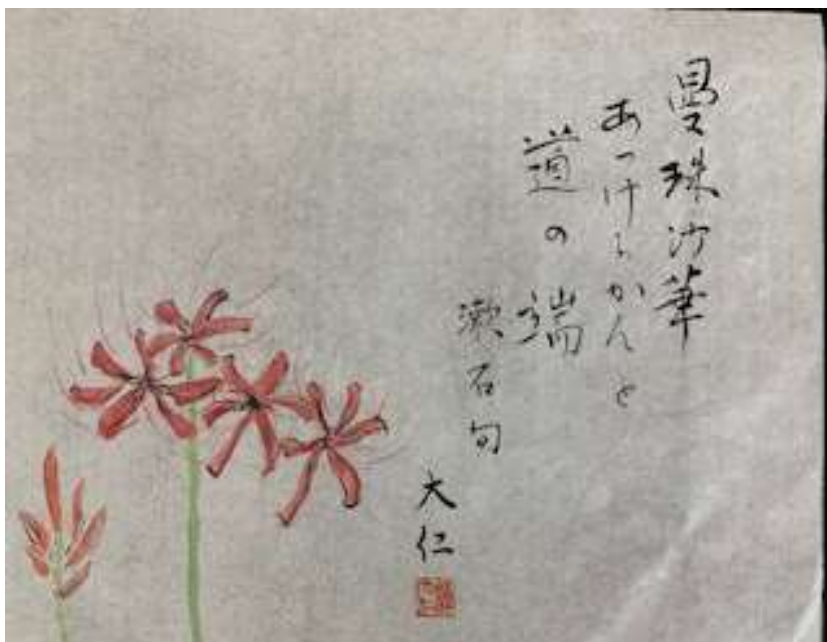 曼珠沙華
あつけらかんと
道の端
漱石句
大仁